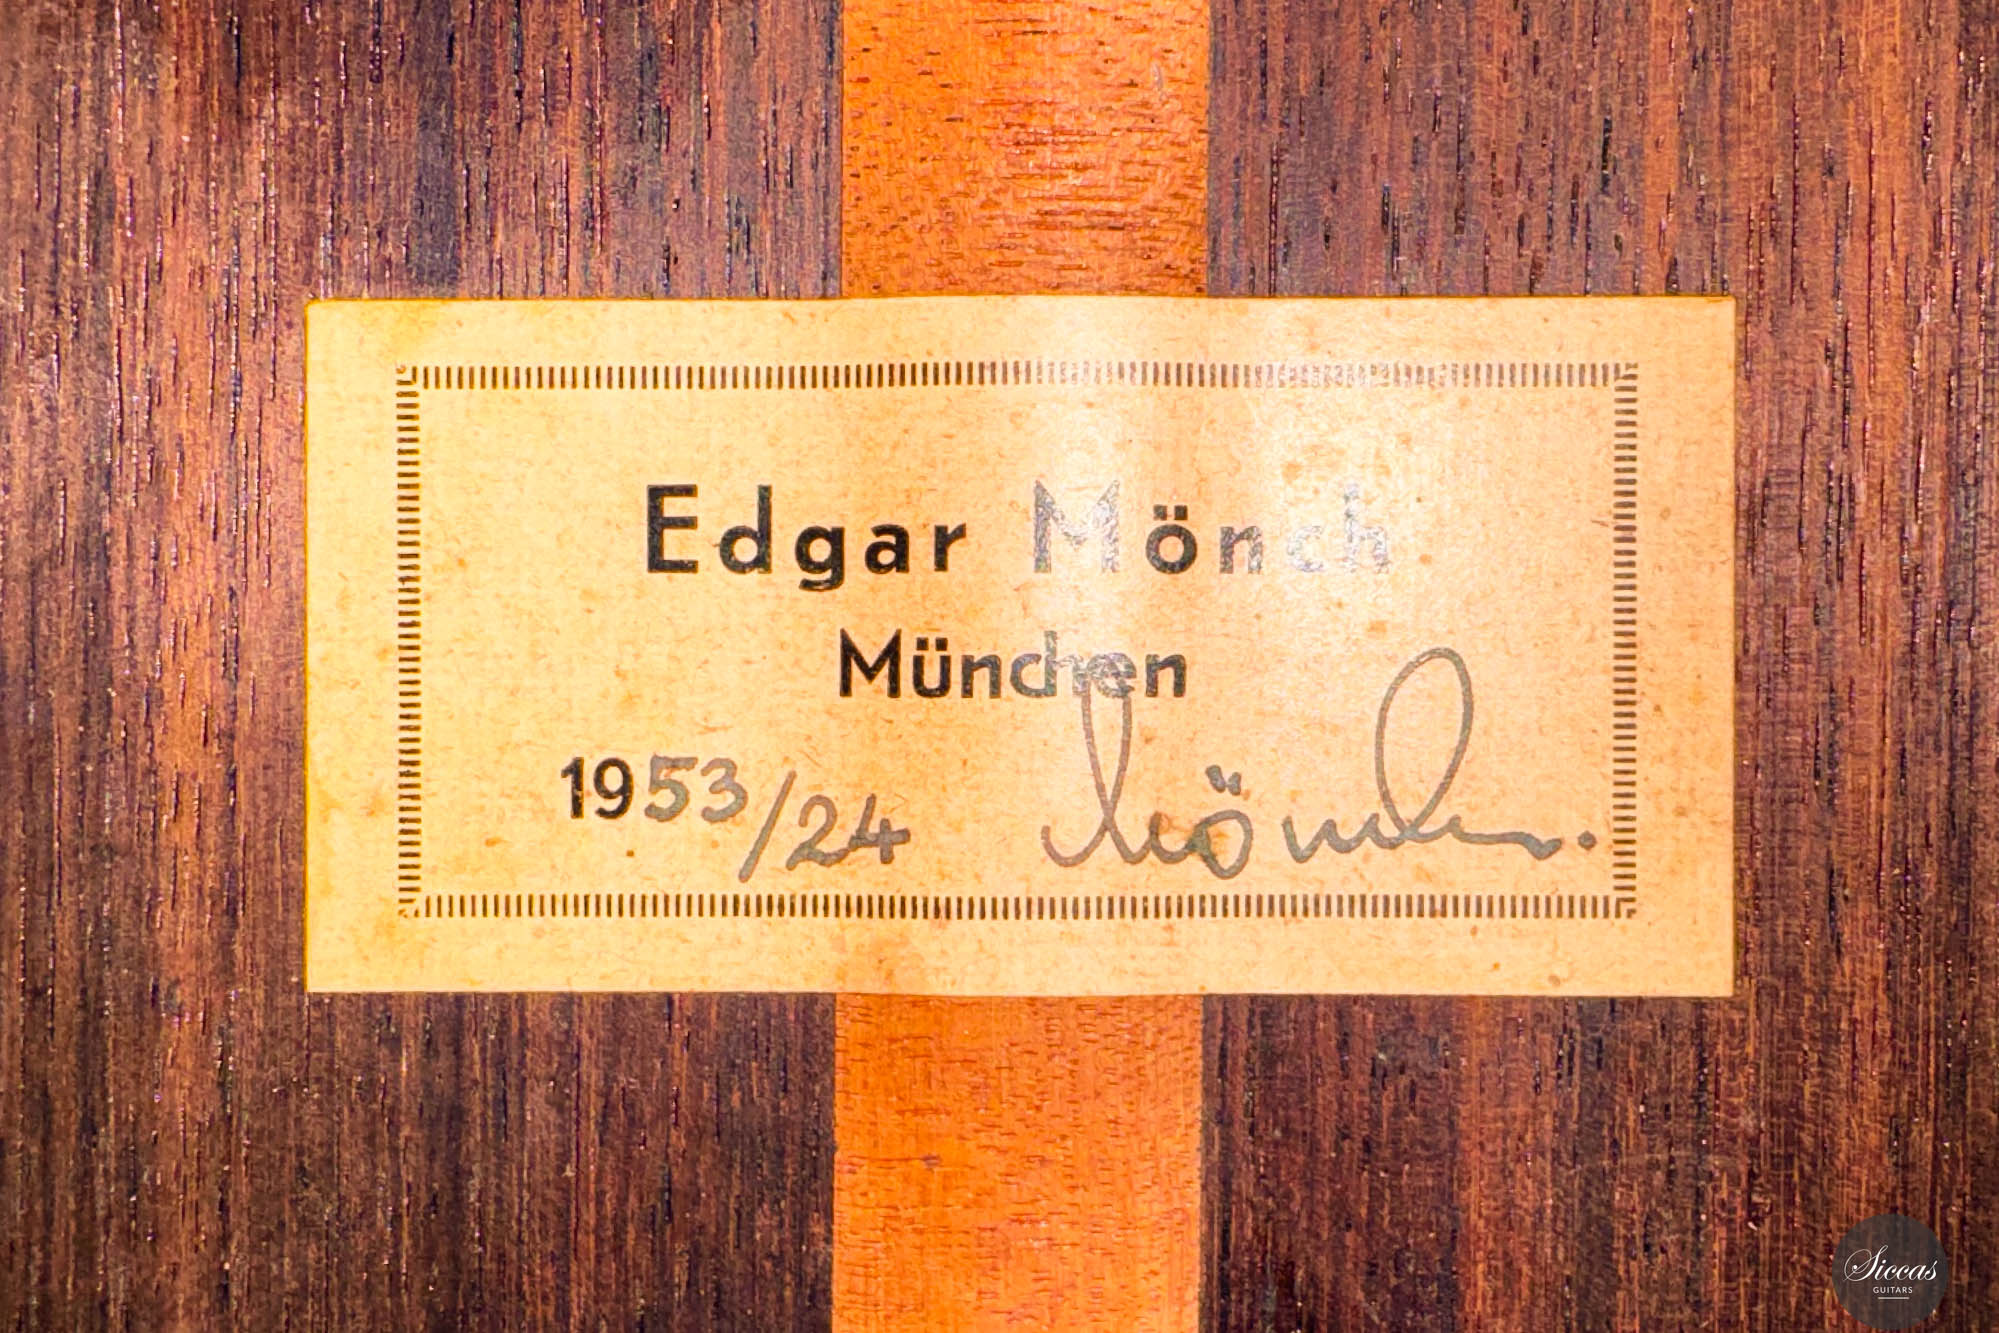 Edgar Mönch
München
1953/24 Mönch.
Siccas
GUITARS